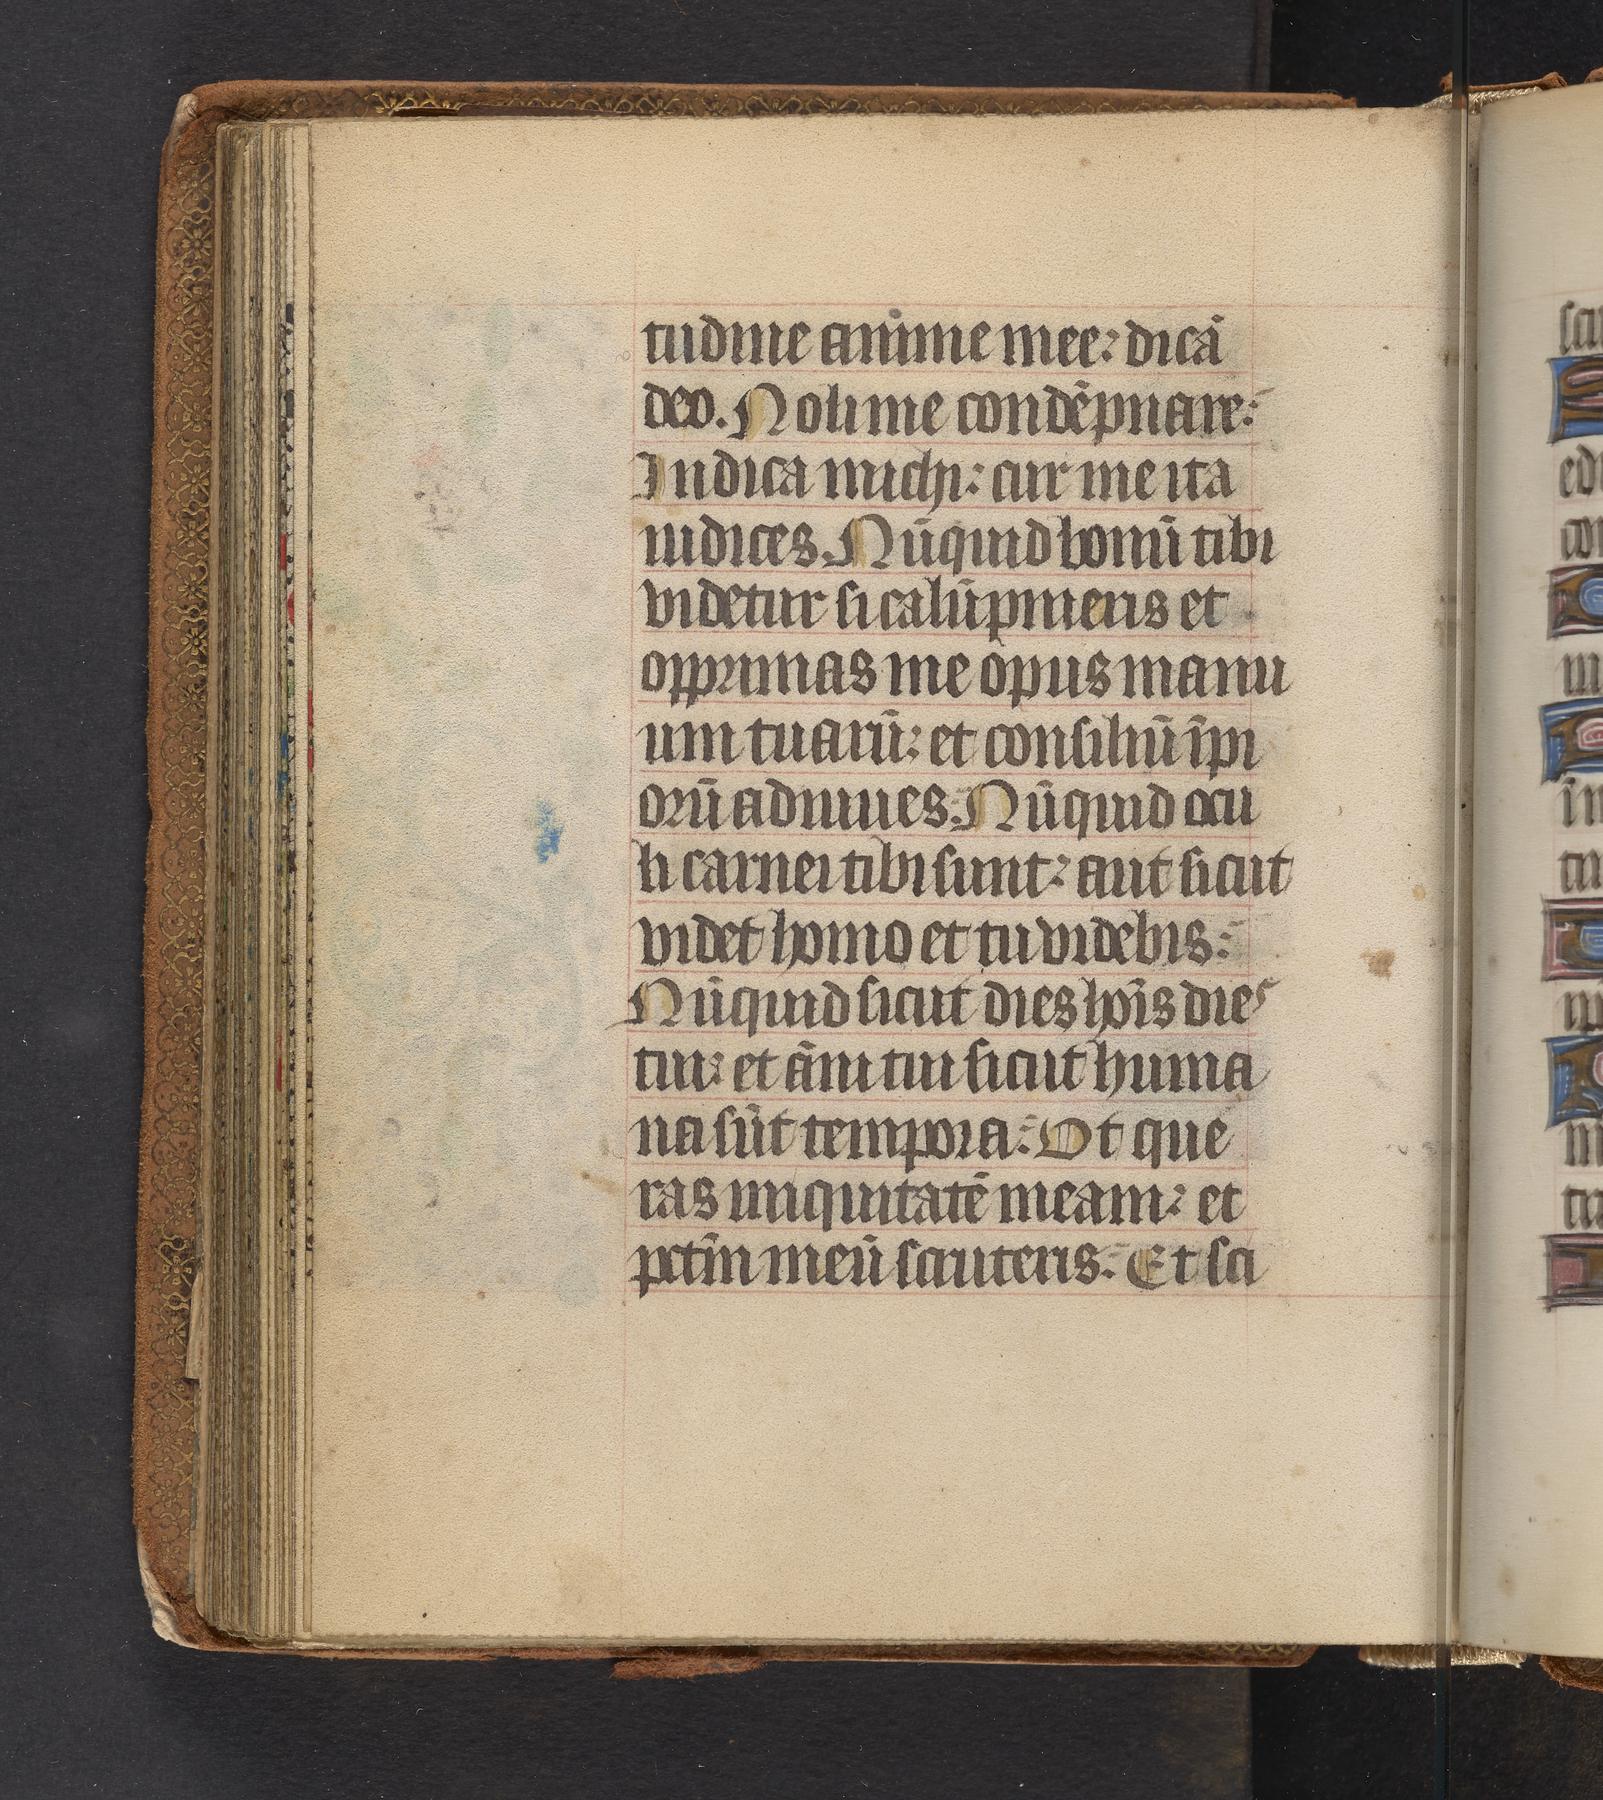 tudine anime mee: dicā
deo. Noli me condēpnare:
Indica michi: cur me ita
iudices. Nūquid bonū tibi
videtur si calūpnieris et
opprimas me opus manu
um tuarū: et consiliū īpi
orū adiuues. Nūquid ocu
li carnei tibi sunt: aut sicut
videt homo et tu videbis:
Nūquid sicut dies hoīs dies
tui: et āni tui sicut huma
na sūt tempora: Ut que
ras iniquitatē meam: et
pctm̄ meū scruteris. Et sci